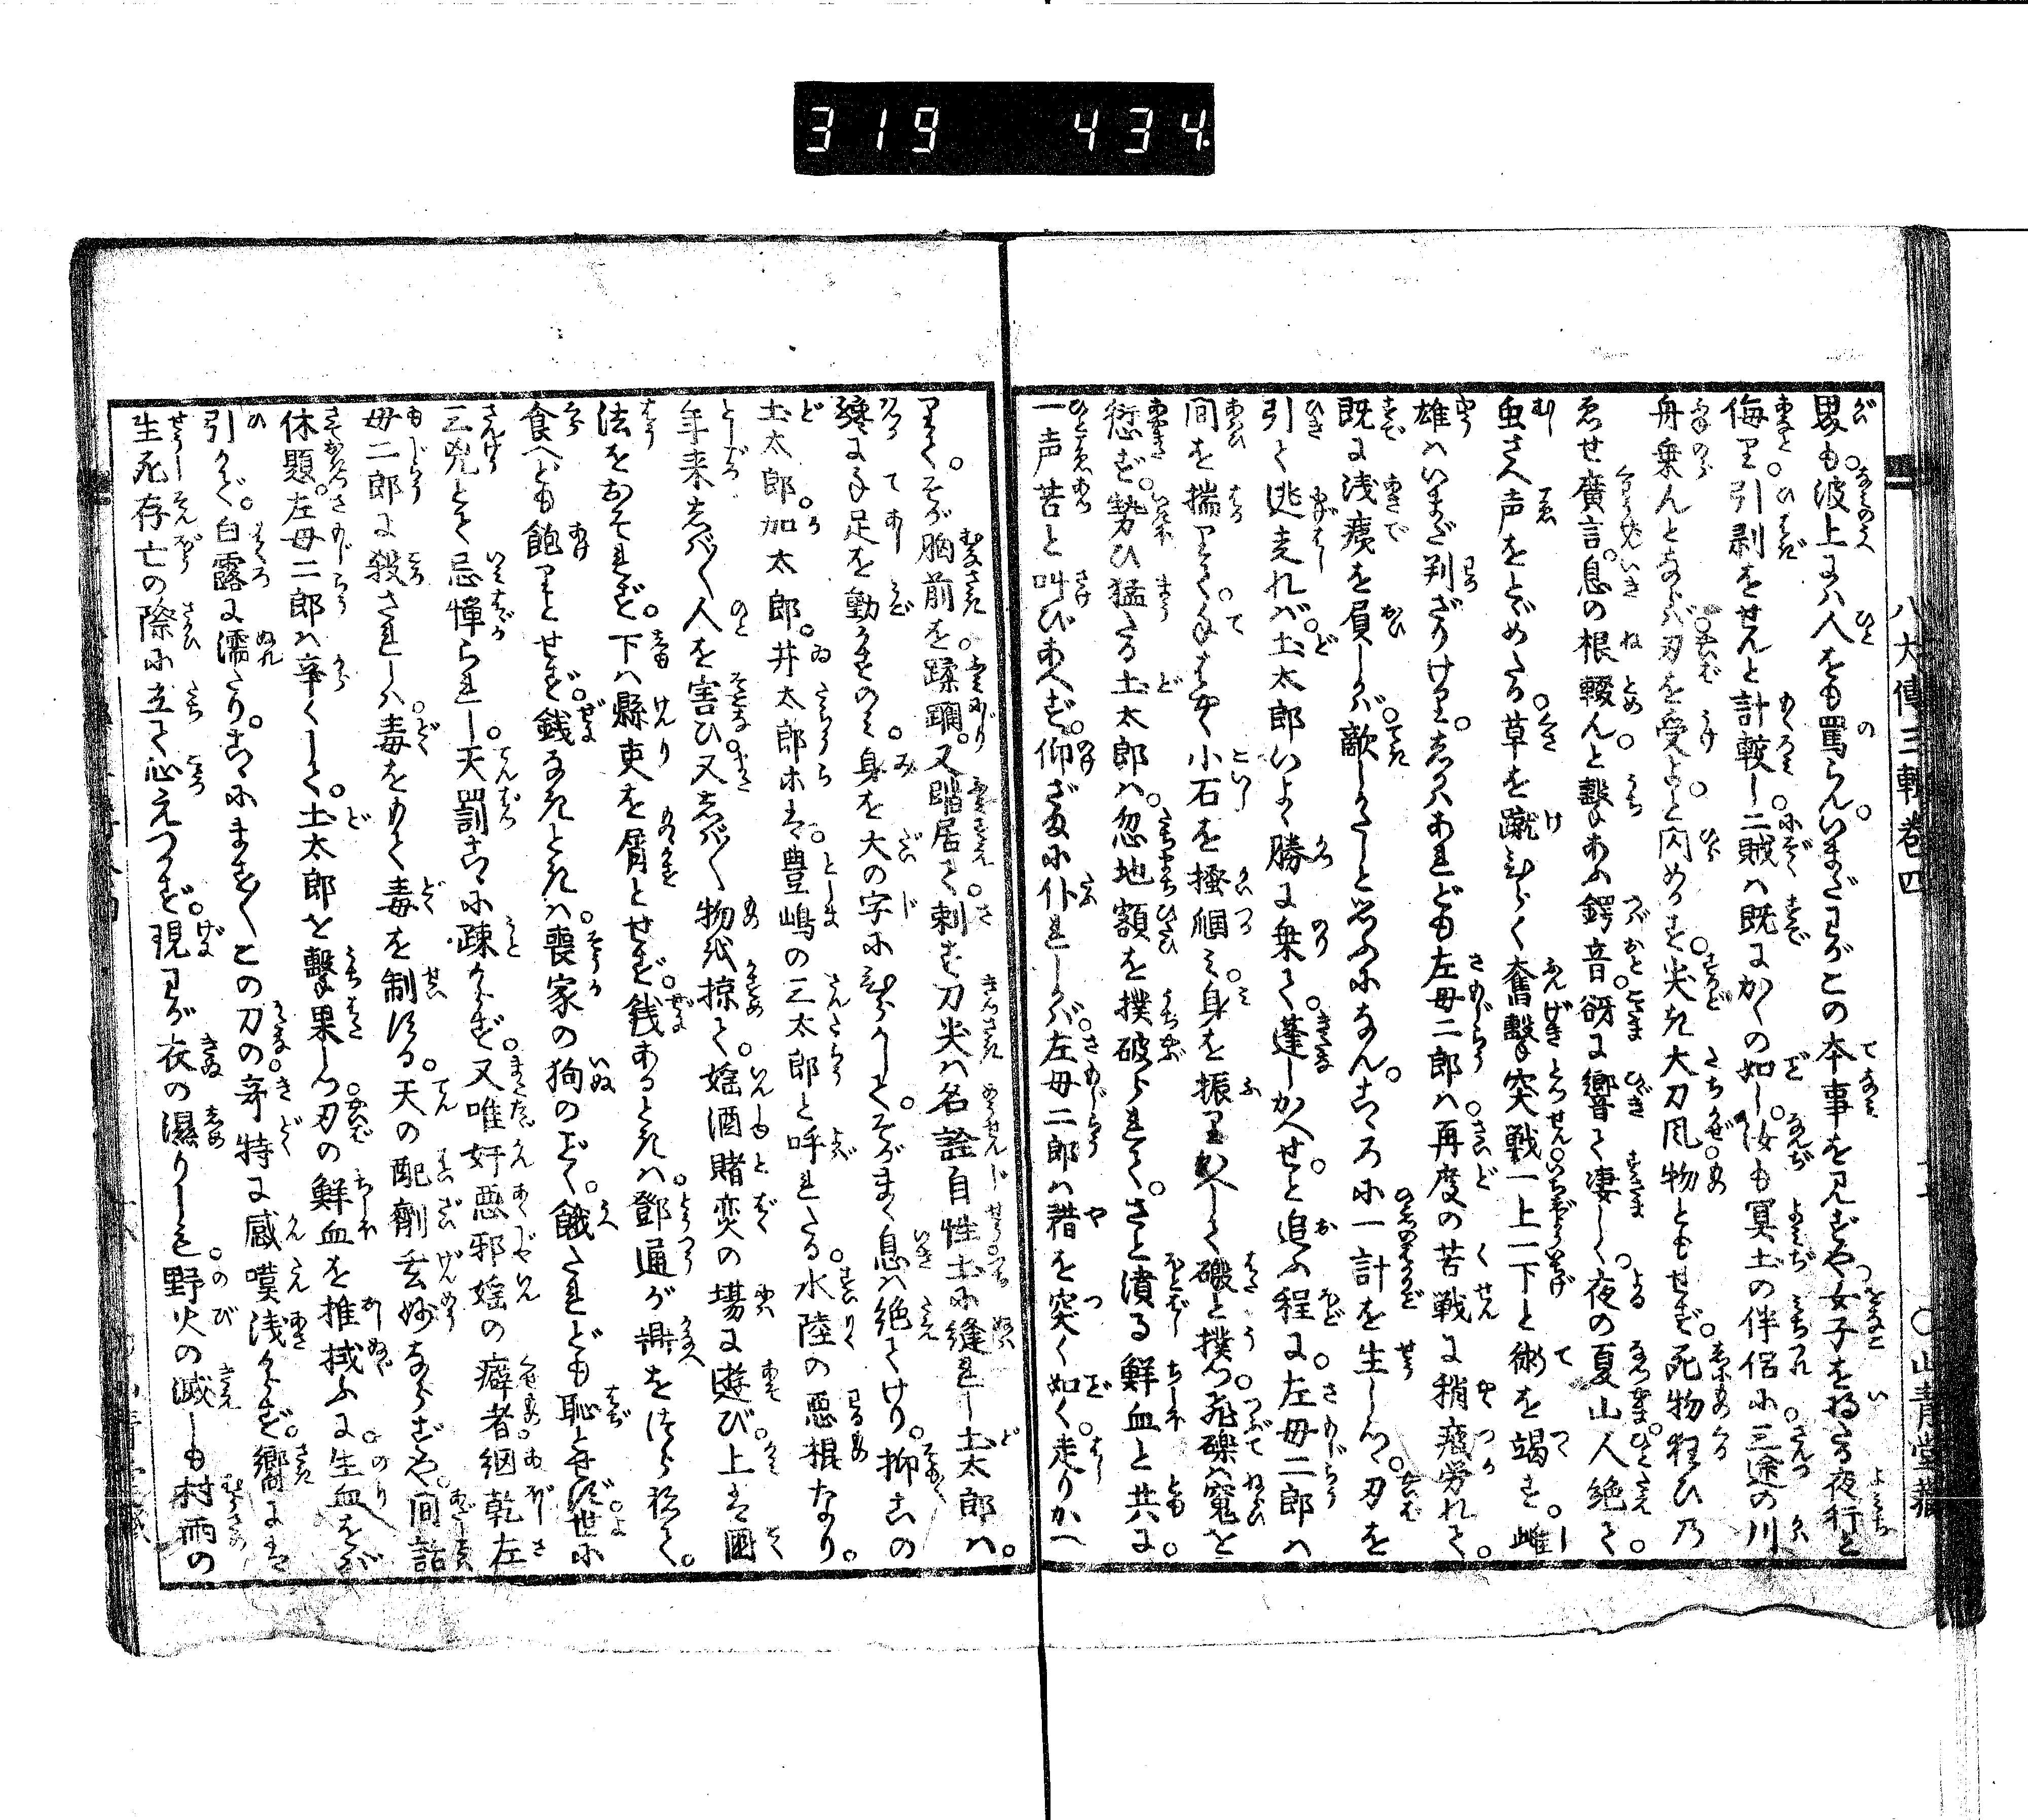 319 434
八犬傳三輯卷四
○山青堂藏
畧も。波上には人をも罵らん。いまだわがこの本事を見ずや。女子を将たる夜行と
侮りて。引剥をせんと計較し二賊は既にかくの如し。汝も冥土の伴侶に三途の川
舟乗んとならば刃を受よと閃めかす。尖き大刀風物ともせず。死物狂ひ乃
ゑせ廣言。息の根輟んと撃あふ鍔音。谺に響きて凄しく。夜の夏山人絶て。
虫さへ声をとゞめたる。草を蹴ひらく奮撃突戦一上一下と術を竭す。雌
雄はいまだ判ざりけり。しかはあれども左母二郎は。再度の苦戦に稍疲労れて。
既に浅痍を負しかば。敵しかたしと思ふになん。こゝろに一計を生しつゝ。刃を
引て逃走れば。土太郎いよゝ勝に乗て。蓬しかへせ。と追ふ程に。左母二郎は
間を揣りて。手ばやく小石を掻𤔩み。身を振りかへして磯と撲つ。飛礫は寃を
愆ず。勢ひ猛たる土太郎は。忽地額を撲破られて。さと濆る鮮血と共に。
一声苦と叫びあへず。仰ざまに仆れしかば。左母二郎は𥎓を突く如く。走りかへ
りて。そが胸前を蹂躙。又踏居て刺す刀尖は名詮自性土に縫れし土太郎は。
纔に手足を動かすのみ。身を大の字にひらかして。そがまゝ息は絶てけり。抑この
土太郎。加太郎。井太郎ホは。豊嶋の三太郎と呼れたる。水陸の悪棍なり。
年来しば〱人を害ひ。又しば〱物を掠て。婬酒賭奕の塲に遊び。上は國
法をおそれず。下は縣吏を屑とせず。銭あるときは。鄧通が鼎をつらねて。
食へども飽りとせず。銭なきときは。喪家の狗のごとく。餓たれども恥とせず。世に
三兇とて忌憚られし。天罰こゝに疎からず。又唯奸悪邪婬の癖者網乾左
母二郎に殺されしは。毒をもて毒を制する。天の配劑玄妙ならずや。間話
休題。左母二郎は辛くして。土太郎を撃果しつ。刃の鮮血を推拭ふに。生血をば
引かで。白露に濡たり。こゝにます〱この刀の。奇特に感嘆浅からず。嚮には
生死存亡の際に立て心えつかず。現わが衣の濕りしも。野火の滅しも村雨の